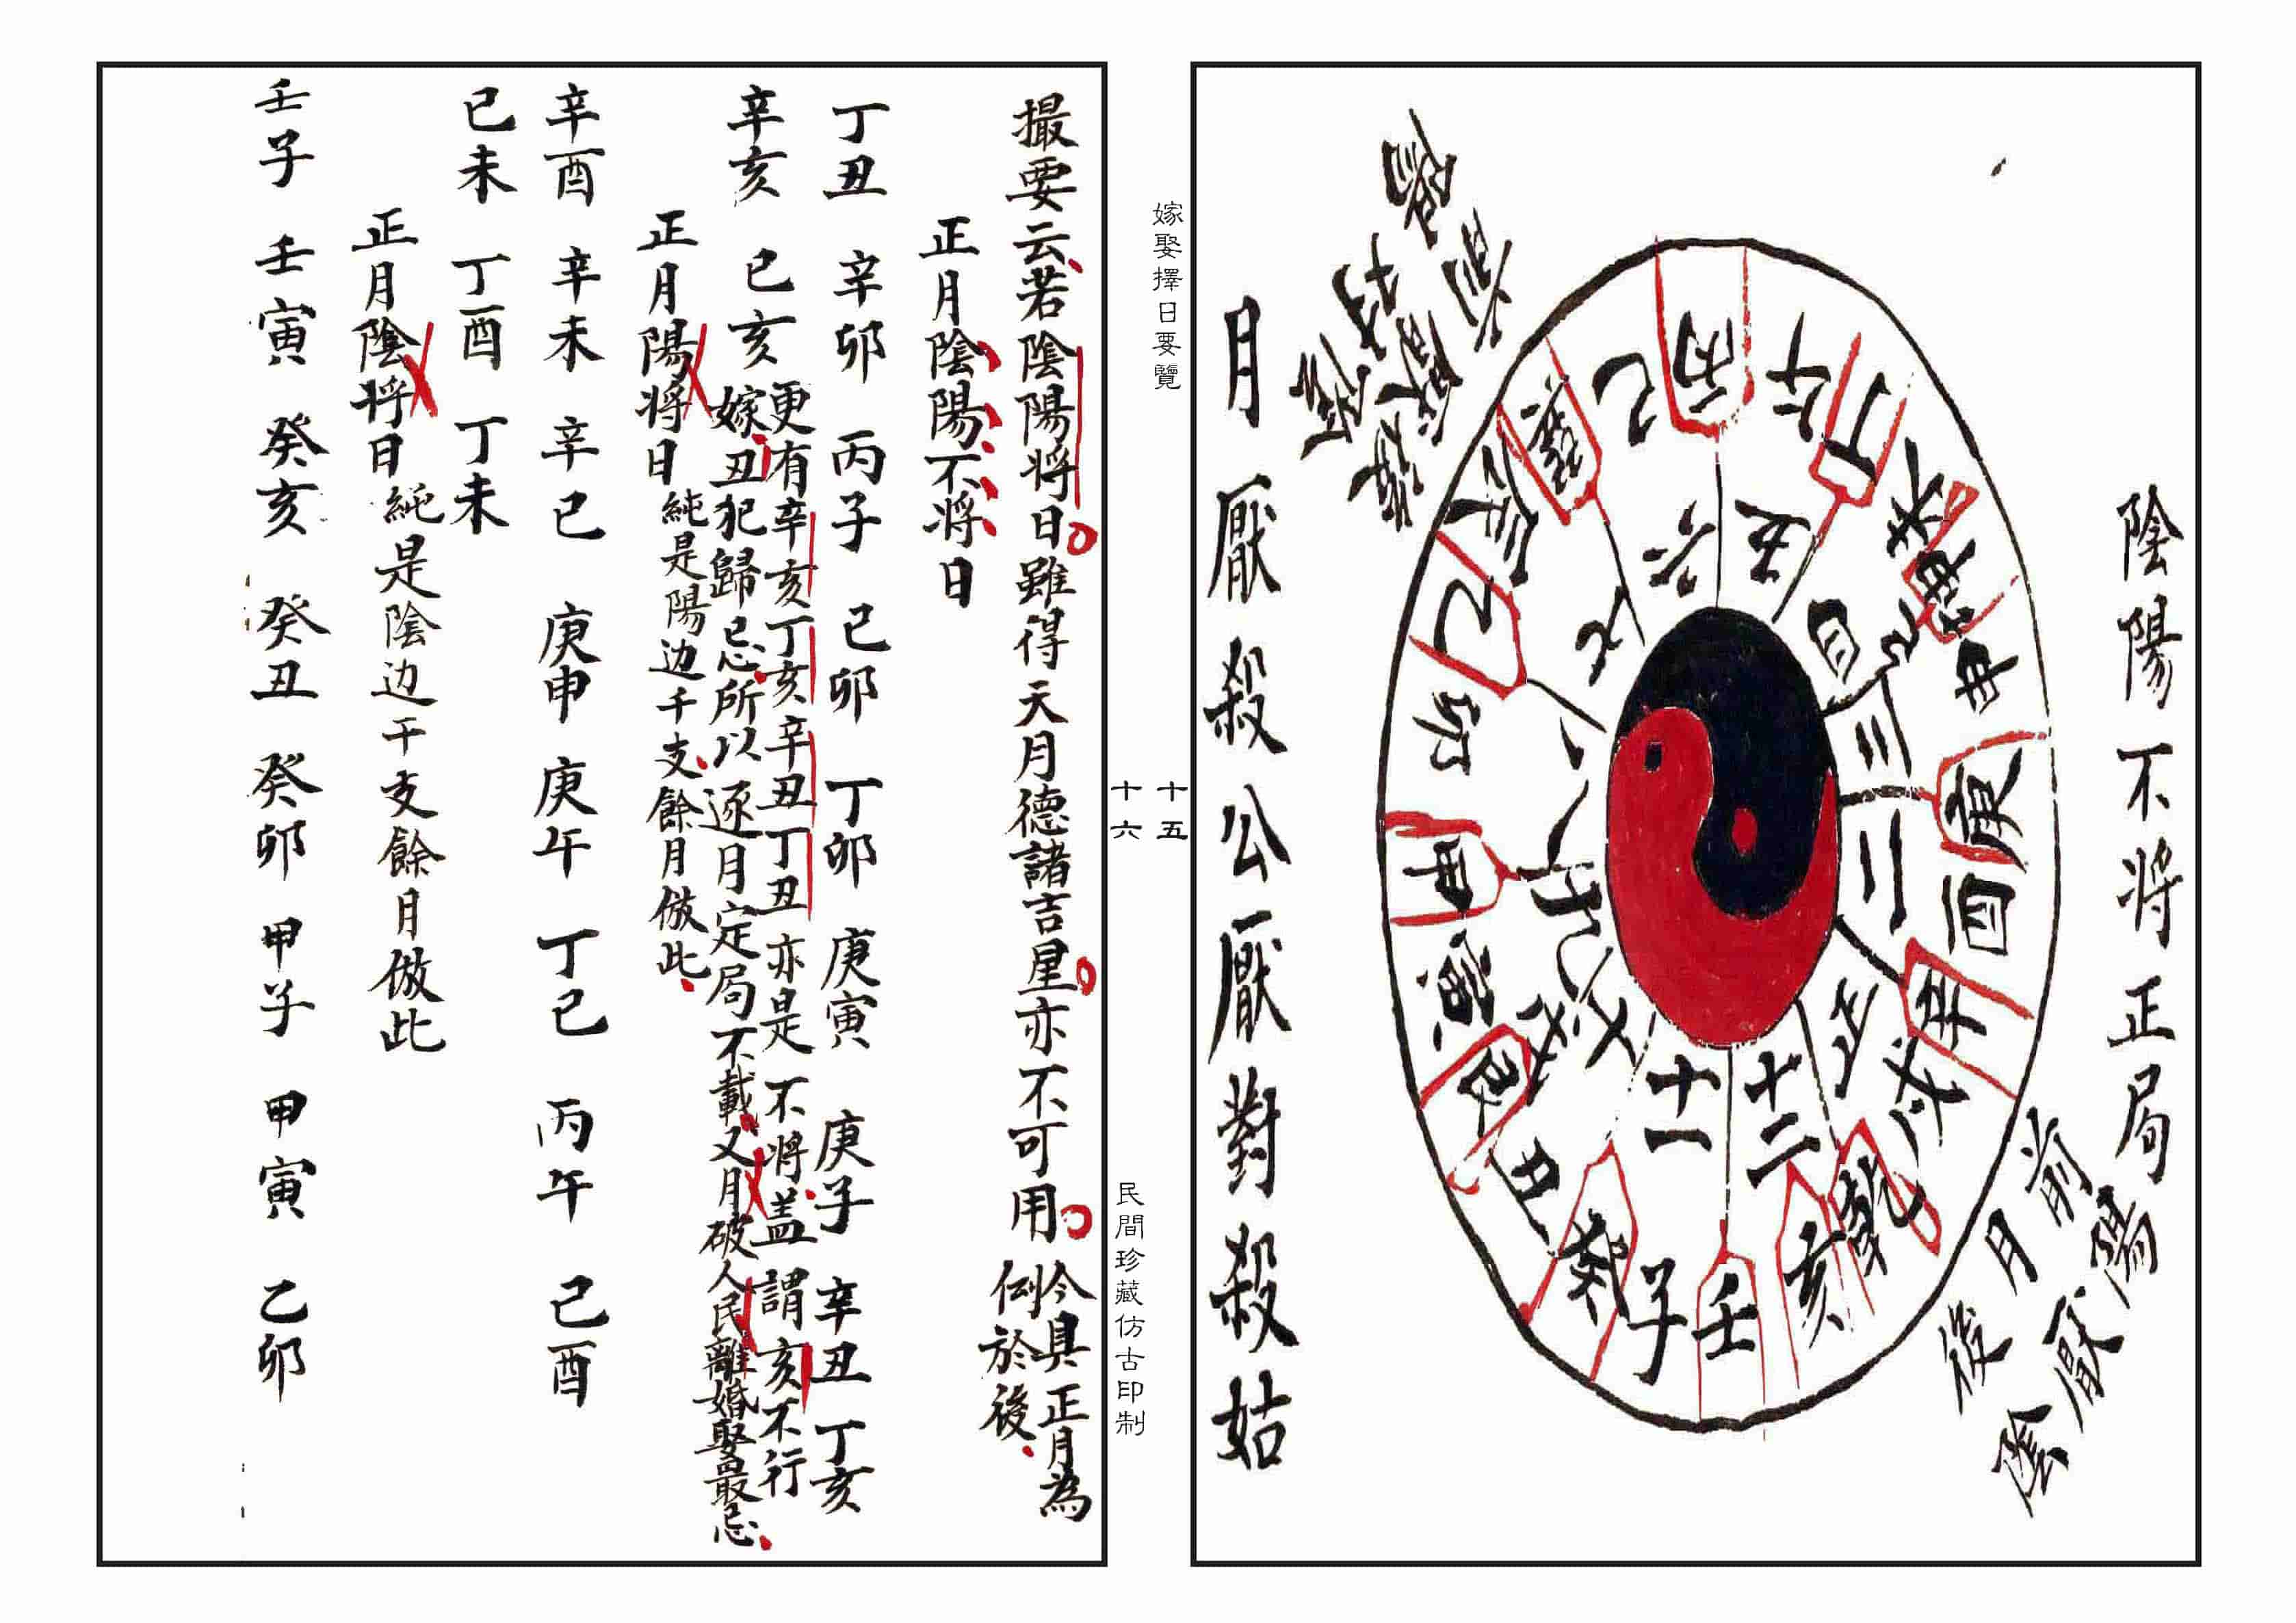 陰陽不將正局
前月後
陽厭陰
丙
午
丁
未
申
庚
酉
辛
戌
亥
壬
子
癸
丑
寅
甲
卯
辰
巳
六
五
三
二
正
十二
十一
月厭殺公厭對殺姑
嫁娶擇日要覽
十五
十六
民間珍藏仿古印制
撮要云若陰陽将日雖得天月德諸吉星亦不可用今具正月為
例於後
正月陰陽不将日
丁丑 辛卯 丙子 己卯 丁卯 庚寅 庚子 辛丑 丁亥
辛亥 已亥 更有辛亥丁亥辛丑丁丑亦是不将盖謂亥不行
嫁丑犯歸忌所以逐月定局不載又月破人民離婚娶最忌
正月陽将日 純是陽边干支餘月倣此
辛酉 辛未 辛巳 庚申 庚午 丁巳 丙午 己酉
已未 丁酉 丁未
正月陰将日 純是陰边干支餘月倣此
壬子 壬寅 癸亥 癸丑 癸卯 甲子 甲寅 乙卯